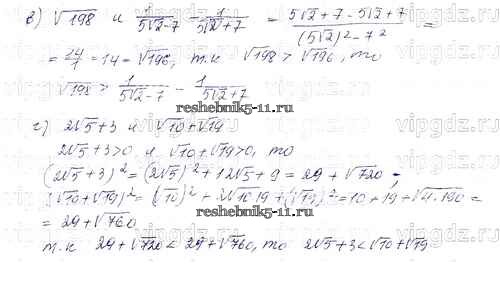 в) √198 и 1/(5√2-7) - 1/(5√2+7) = (5√2+7-5√2+7)/((5√2)²-7²) =
= 14/1 = 14 = √196, т.к √198 > √196, то
√198 > 1/(5√2-7) - 1/(5√2+7)
reshebnik5-11.ru
г) 2√5+3 и √10+√19
2√5+3>0 и √10+√19>0, то
(2√5+3)² = (2√5)²+12√5+9 = 29+√720;
(√10+√19)² = (√10)²+2√10·19+(√19)² = 10+19+√4·190 =
= 29+√760
reshebnik5-11.ru
т.к 29+√720 < 29+√760, то 2√5+3 < √10+√19
vipgdz.ru